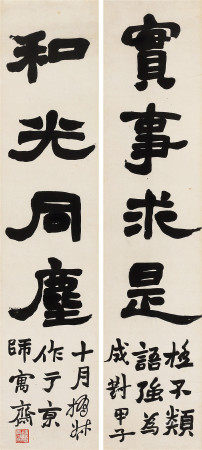 實事求是
極不類
語強為
成對甲子
和光同塵
十月撝叔
作于京
師寓齋